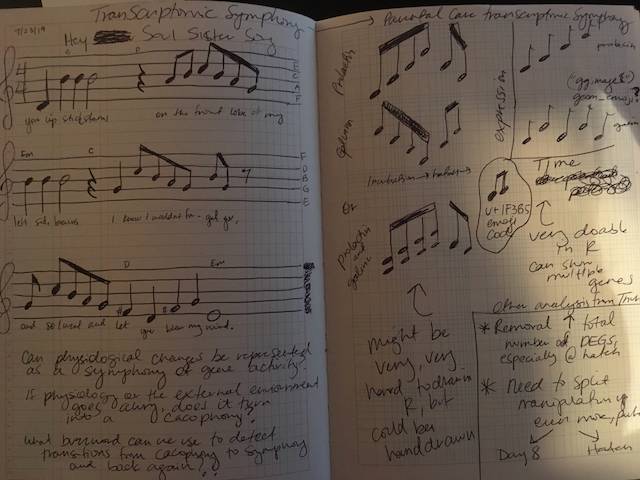 Transcriptomic Symphony
7/23/19
Hey Soul Sister Song
your lip stick stains
on the front lobe of my
Em
C
left side brains
I know I wouldn't for- get you,
D
Em
and so I went and let
you blow my mind.
Can physiological changes be represented
as a symphony of gene activity.
If physiology or the external environment
goes awry, does it turn
into a cacophony?
What buzzword can we use to detect
transitions from cacophony to symphony
and back again?
Parental Care transcriptomic Symphony
Prolactin
Galanin
incubation → hatch →
Or
Prolactin and
might be
very, very
hard to draw in
R, but
could be
hand drawn
expression
prolactin
"ggimage" &
geom_emoji?
Time
U+1F3B5
emoji
code
very doable
in R
can show
multiple
genes
Other analysis from
* Removal ↑ total
number of DEGs,
especially @ hatch
* Need to split
manipulation up
even more,
Day 8
Hatch